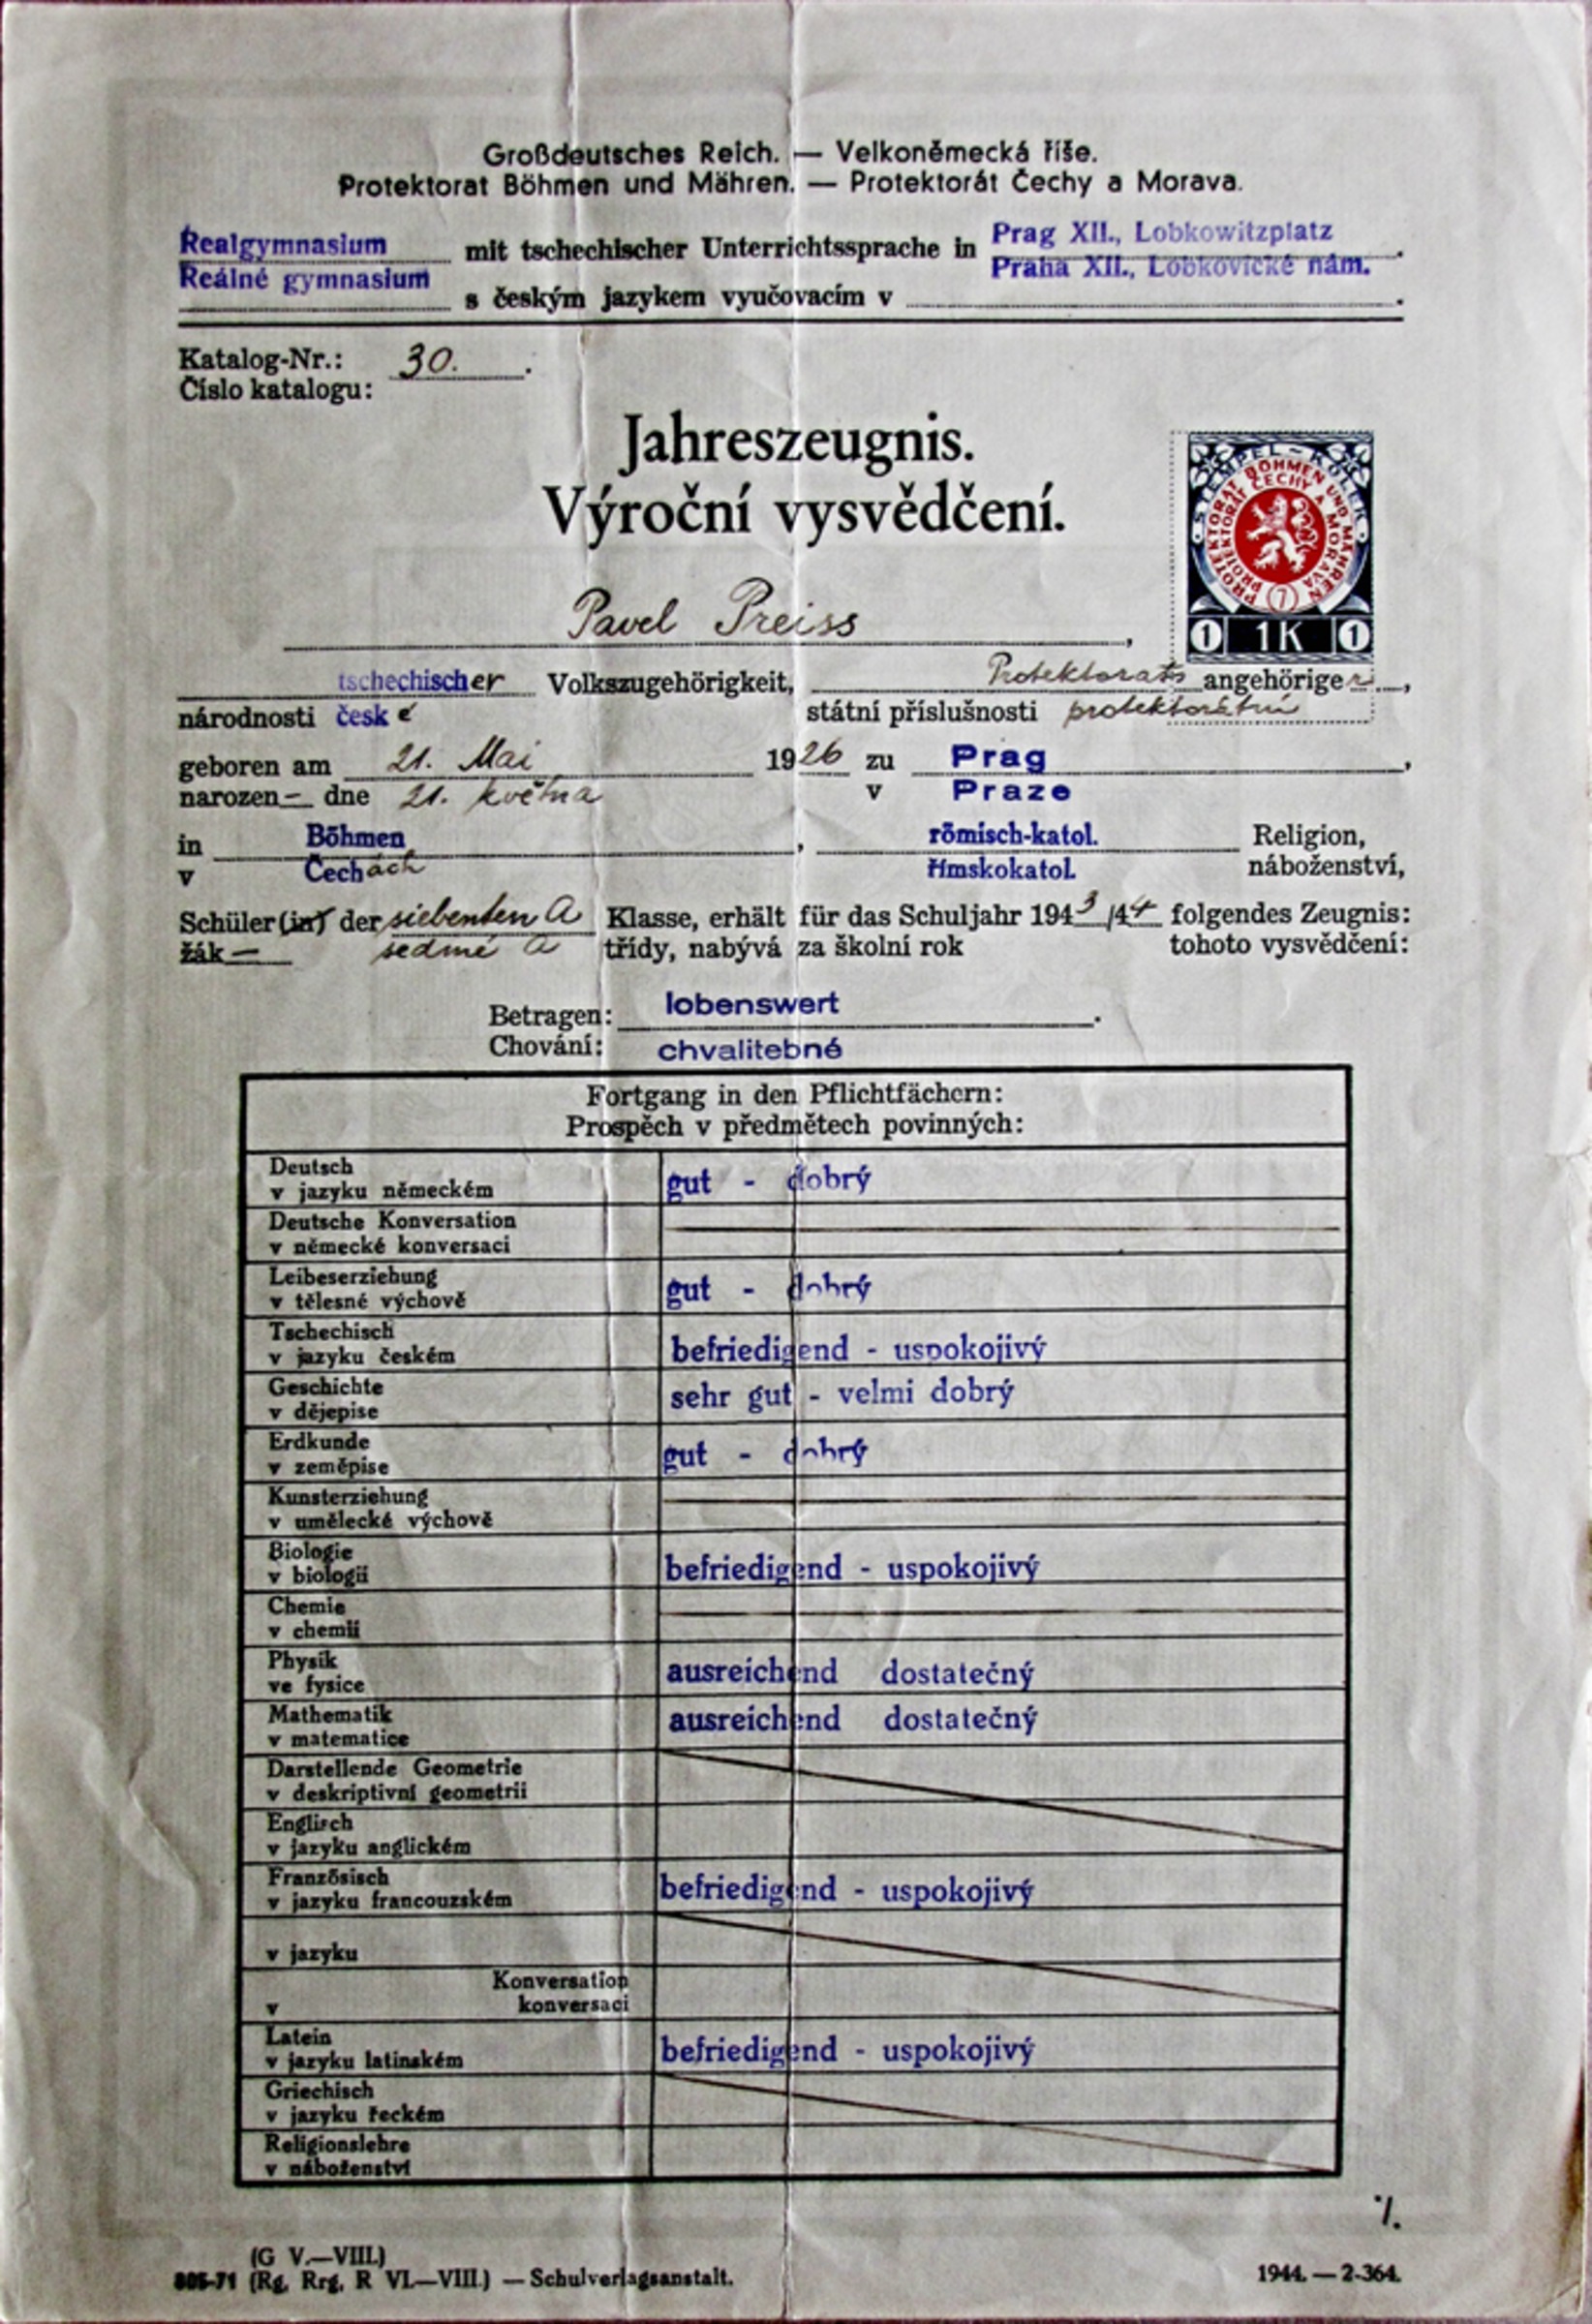 Großdeutsches Reich. — Velkoněmecká říše.
Protektorat Böhmen und Mähren. — Protektorát Čechy a Morava.
Realgymnasium mit tschechischer Unterrichtssprache in Prag XII., Lobkowitzplatz.
Reálné gymnasium s českým jazykem vyučovacím v Praha XII., Lobkovické nám.
Katalog-Nr.: 30.
Číslo katalogu:
Jahreszeugnis.
Výroční vysvědčení.
STEMPEL - KOLEK
PROTEKTORAT BÖHMEN UND MÄHREN
PROTEKTORÁT ČECHY A MORAVA
(7)
1 1K 1
Pavel Preiss,
tschechischer Volkszugehörigkeit, Protektorats angehöriger,
národnosti české státní příslušnosti protektorátní
geboren am 21. Mai 1926 zu Prag,
narozen — dne 21. května v Praze
in Böhmen, römisch-katol. Religion,
v Čechách římskokatol. náboženství,
Schüler(in) der siebenten A Klasse, erhält für das Schuljahr 1943/44 folgendes Zeugnis:
žák — sedmé A třídy, nabývá za školní rok tohoto vysvědčení:
Betragen: lobenswert.
Chování: chvalitebné
Fortgang in den Pflichtfächern:
Prospěch v předmětech povinných:
Deutsch
v jazyku německém gut - dobrý
Deutsche Konversation
v německé konversaci
Leibeserziehung
v tělesné výchově gut - dobrý
Tschechisch
v jazyku českém befriedigend - uspokojivý
Geschichte
v dějepise sehr gut - velmi dobrý
Erdkunde
v zeměpise gut - dobrý
Kunsterziehung
v umělecké výchově
Biologie
v biologii befriedigend - uspokojivý
Chemie
v chemii
Physik
ve fysice ausreichend dostatečný
Mathematik
v matematice ausreichend dostatečný
Darstellende Geometrie
v deskriptivní geometrii
Englisch
v jazyku anglickém
Französisch
v jazyku francouzském befriedigend - uspokojivý
v jazyku
Konversation
v konversaci
Latein
v jazyku latinském befriedigend - uspokojivý
Griechisch
v jazyku řeckém
Religionslehre
v náboženství
·/.
(G V.—VIII.)
805-71 (Rg, Rrg, R VI.—VIII.) — Schulverlagsanstalt. 1944. — 2-364.